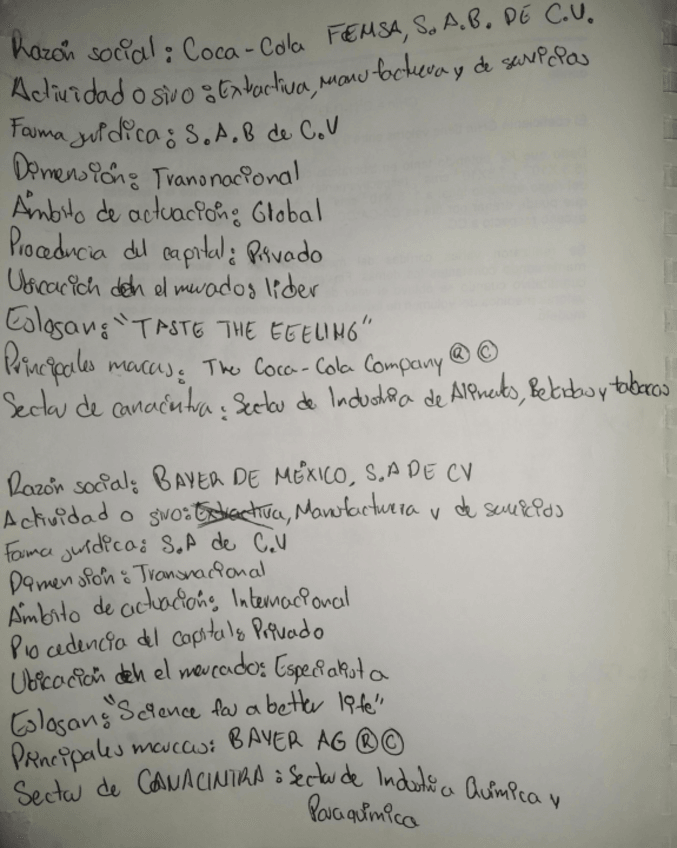 Razón social: Coca-Cola FEMSA, S.A.B. DE C.V.
Actividad o giro: Extractiva, manufacturera y de servicios
Forma jurídica: S.A.B de C.V
Dimensión: Transnacional
Ámbito de actuación: Global
Procedencia del capital: Privado
Ubicación en el mercado: lider
Eslogan: "TASTE THE FEELING"
Principales marcas: The Coca-Cola Company ® ©
Sector de canacintra: Sector de Industria de Alimentos, Bebidas y tabacos
Razón social: BAYER DE MÉXICO, S.A DE CV
Actividad o giro: Extractiva, Manufacturera y de servicios
Forma jurídica: S.A de C.V
Dimensión: Transnacional
Ámbito de actuación: Internacional
Procedencia del capital: Privado
Ubicación en el mercado: Especialista
Eslogan: "Science for a better life"
Principales marcas: BAYER AG ® ©
Sector de CANACINTRA: Sector de Industria Química y
Paraquímica